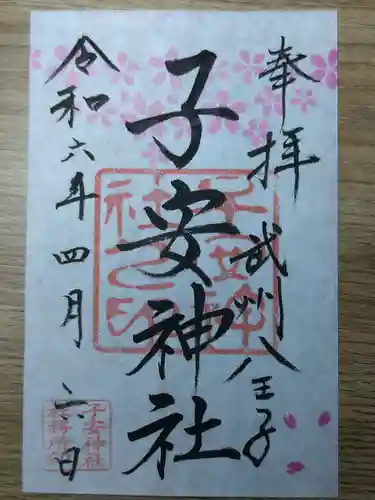 奉拝 武州八王子
子安神社
令和六年四月六日
子安神社
社務所印